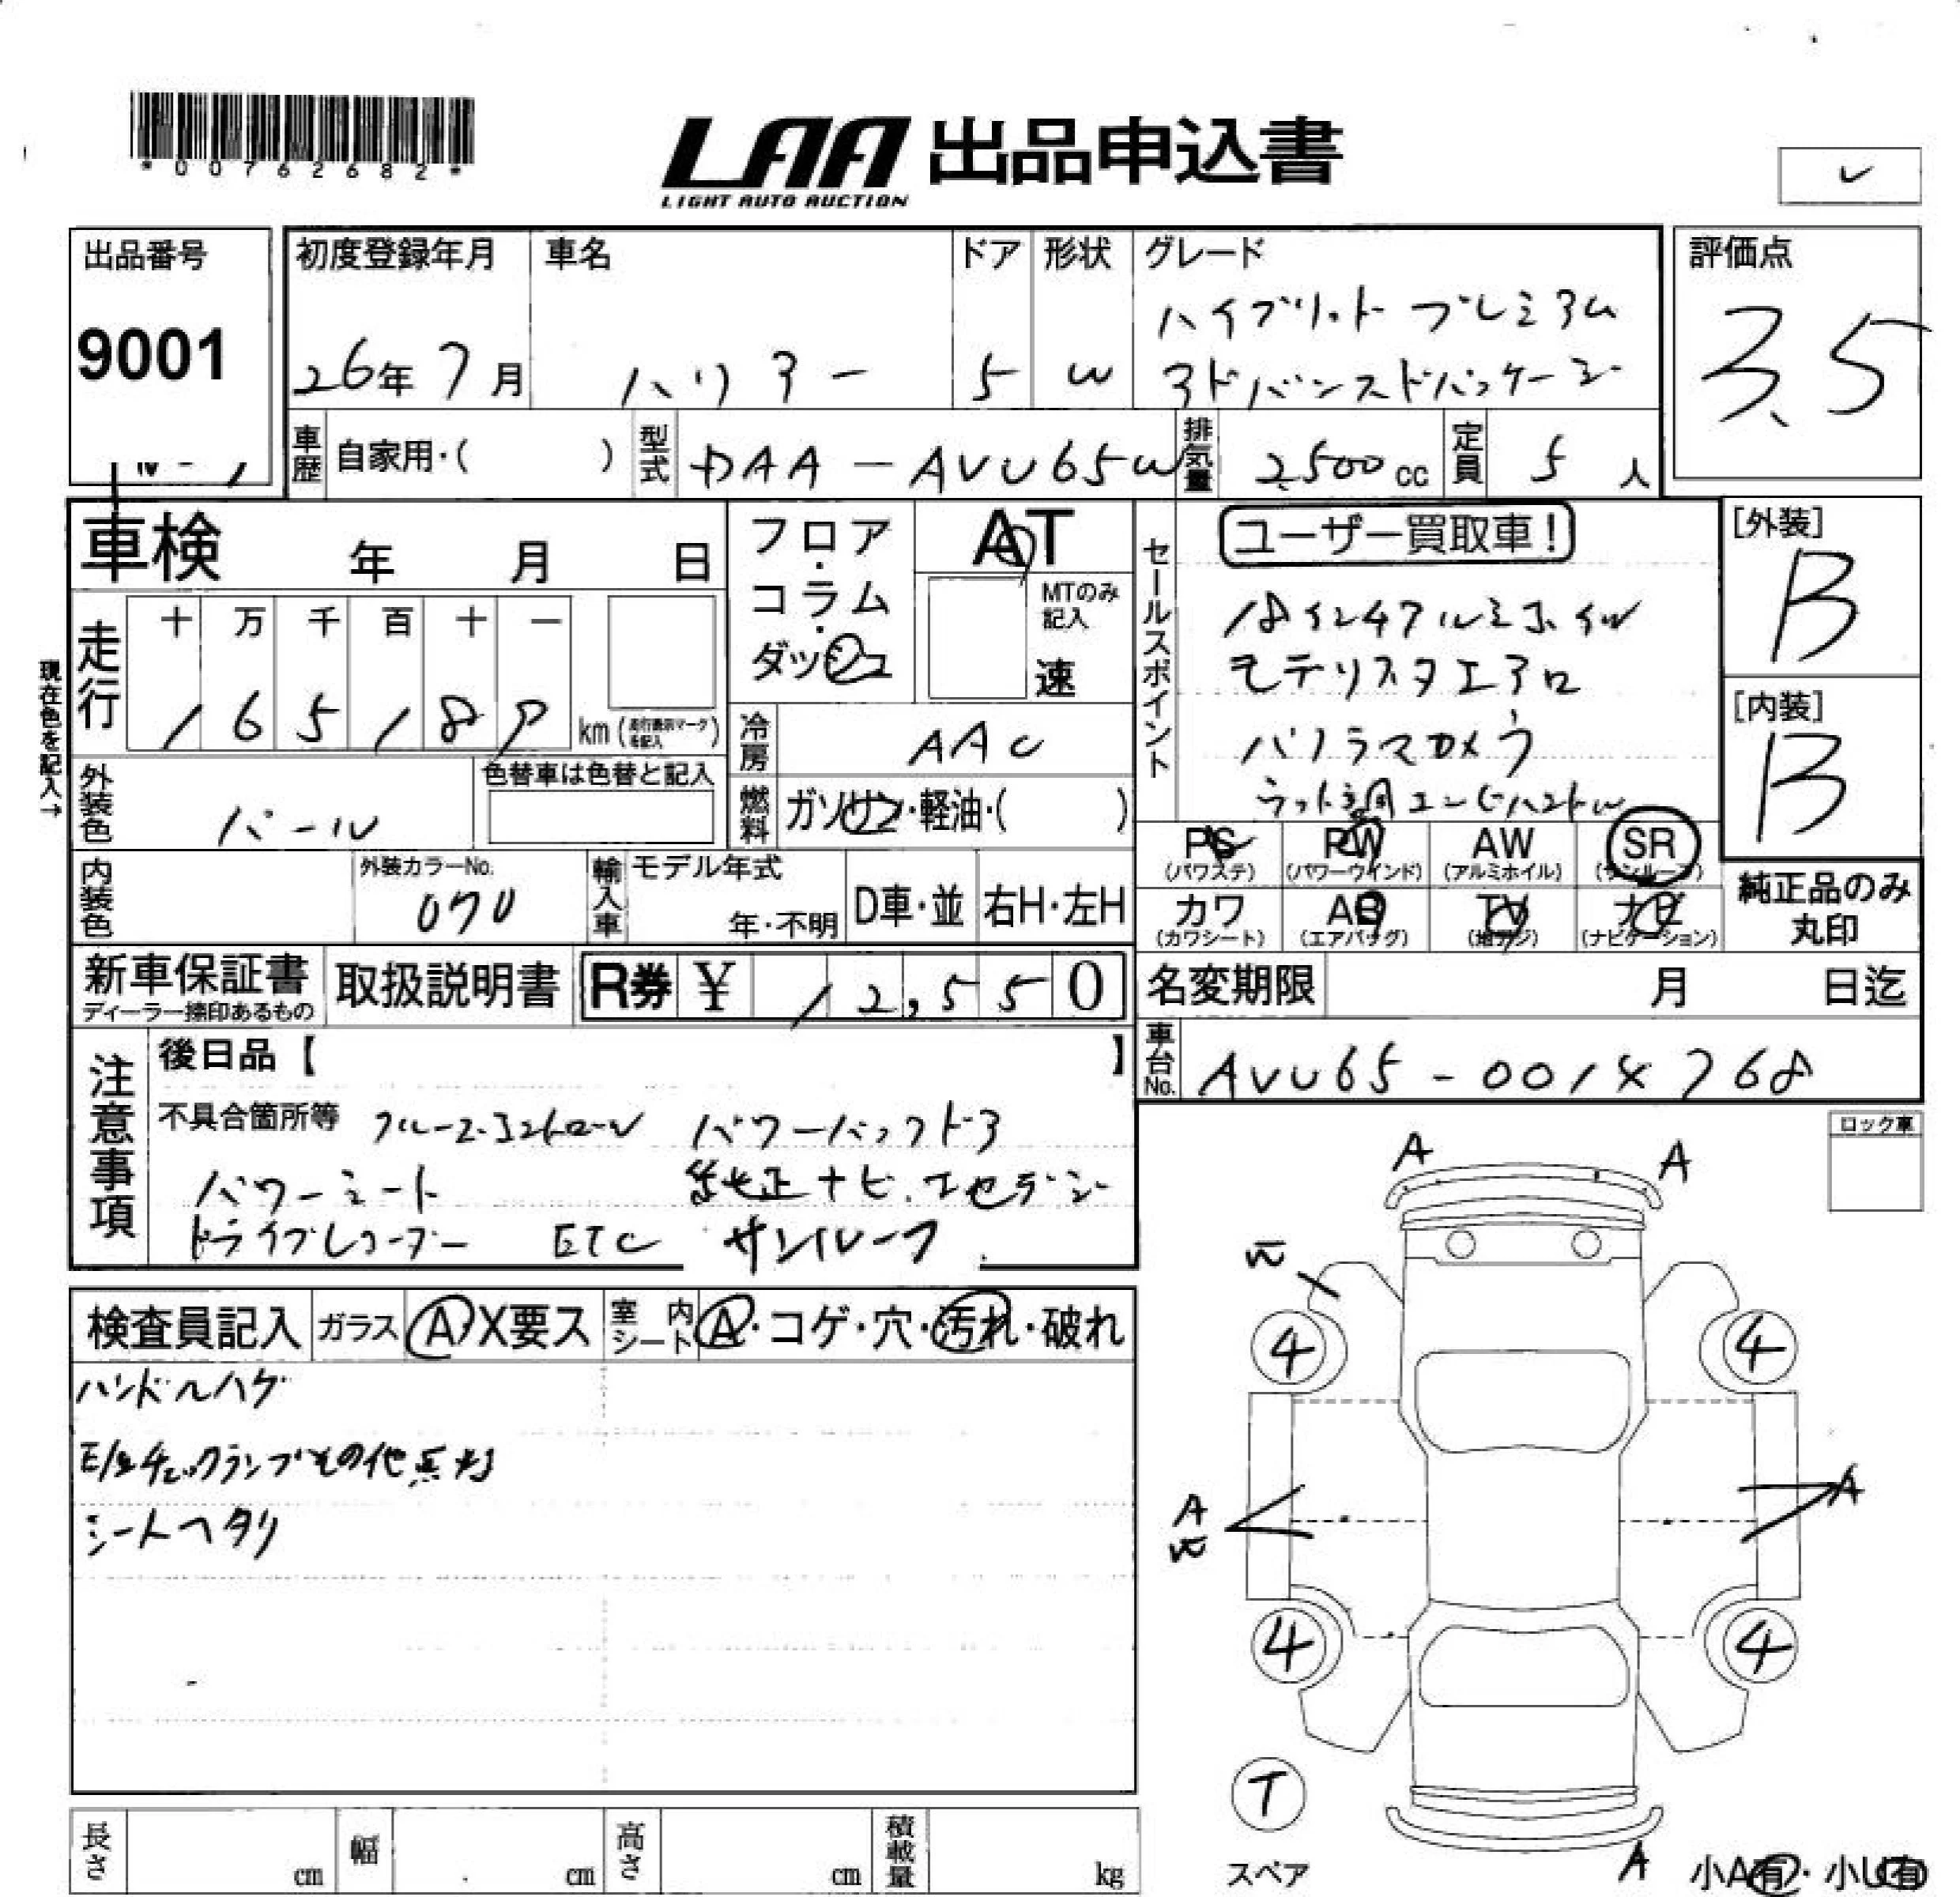 *00762682*
LAA 出品申込書
LIGHT AUTO AUCTION
出品番号
9001
初度登録年月
26年7月
車名
ハリアー
ドア
5
形状
W
グレード
ハイブリット プレミアム
アドバンスドパッケージ
評価点
3.5
車歴 自家用・( )
型式 DAA-AVU65W
排気量 2500cc
定員 5人
車検 年 月 日
フロア・コラム・ダッシュ
AT
MTのみ記入
速
セールスポイント
ユーザー買取車!
18インチアルミホイル
モデリスタエアロ
パノラマカメラ
ウット調コンビハンドル
[外装]
B
[内装]
B
現在色を記入→
走行
十 万 千 百 十 一
165189
km (走行表示マークを記入)
冷房 AAC
外装色 パール
色替車は色替と記入
燃料 ガソリン・軽油・( )
PS (パワステ)
PW (パワーウインド)
AW (アルミホイル)
SR (サンルーフ)
カワ (カワシート)
AB (エアバッグ)
TV (地デジ)
ナビ (ナビゲーション)
純正品のみ丸印
内装色
外装カラーNo.
070
輸入車
モデル年式
年・不明
D車・並
右H・左H
新車保証書
ディーラー捺印あるもの
取扱説明書
R券 ¥ 12,550
名変期限 月 日迄
車台No. AVU65-0014768
注意事項
後日品【 】
不具合箇所等 クルーズコントロール パワーバックドア
パワーシート 純正ナビ.フセグデジ
ドライブレコーダー ETC サンルーフ
ロック車
検査員記入
ガラス A X要ス
室内シート A・コゲ・穴・汚れ・破れ
ハンドルハゲ
E/gチェックランプその他点灯
シートヘタリ
A
A
4
4
A
A
4
4
T
スペア
A
小A有・小U有
長さ cm
幅 cm
高さ cm
積載量 kg